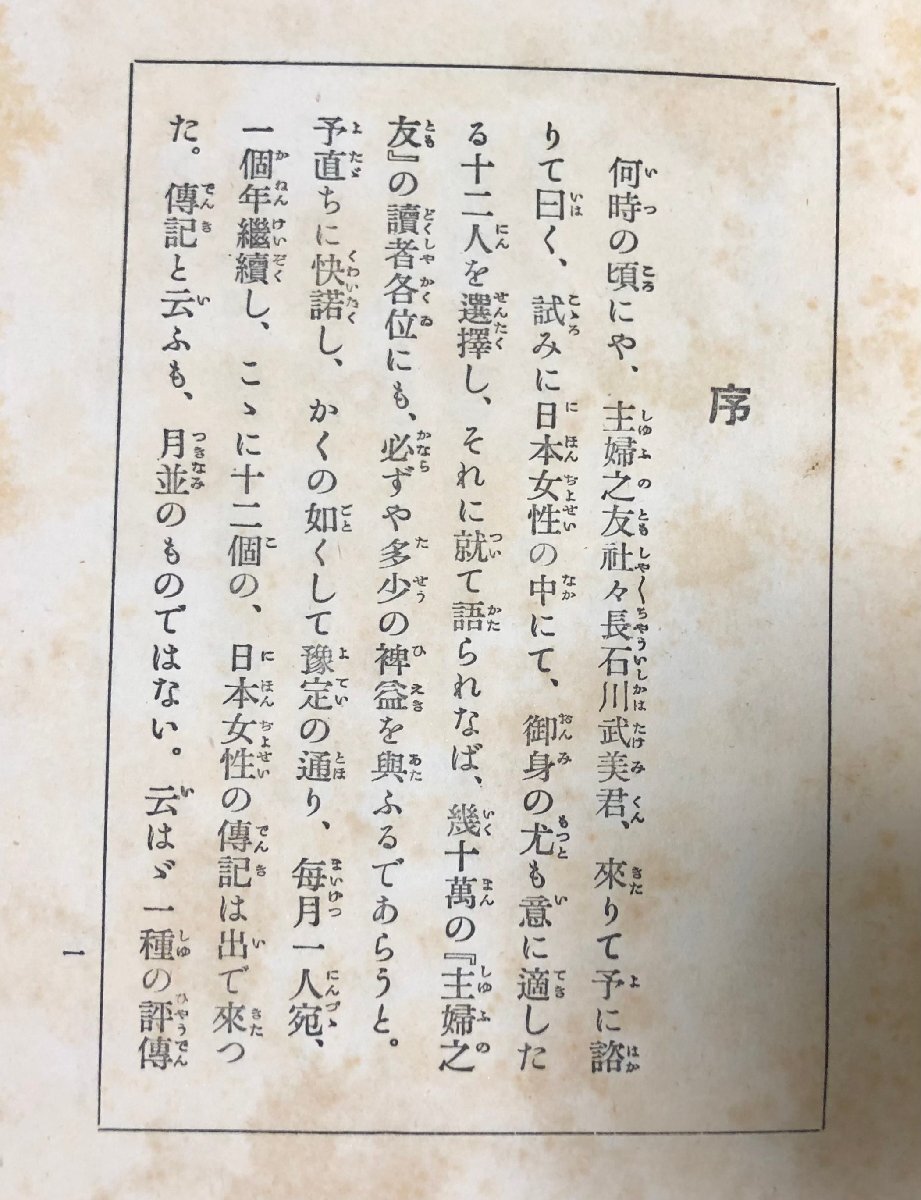 序
何時の頃にや、主婦之友社々長石川武美君、來りて予に諮
りて曰く、試みに日本女性の中にて、御身の尤も意に適した
る十二人を選擇し、それに就て語られなば、幾十萬の『主婦之
友』の讀者各位にも、必ずや多少の裨益を與ふるであらうと。
予直ちに快諾し、かくの如くして豫定の通り、毎月一人宛、
一個年繼續し、こゝに十二個の、日本女性の傳記は出で來つ
た。傳記と云ふも、月並のものではない。云はゞ一種の評傳
一